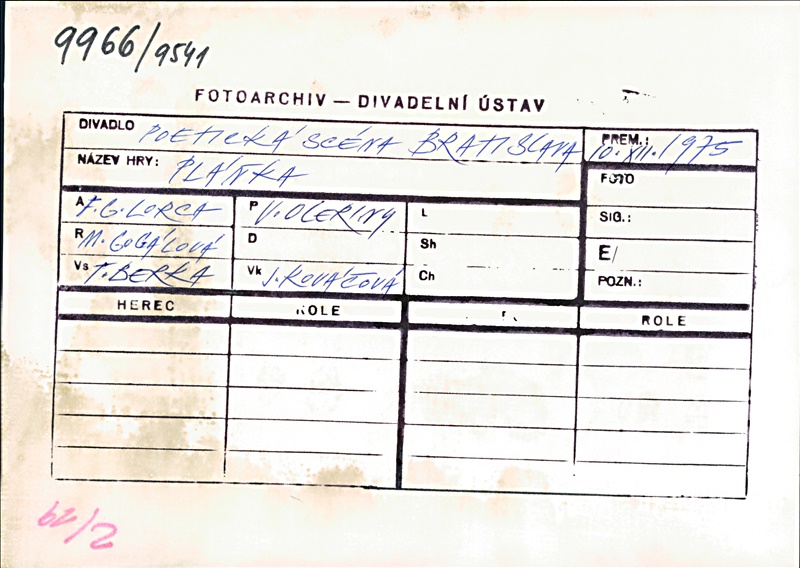 9966/9541
FOTOARCHIV — DIVADELNÍ ÚSTAV
DIVADLO POETICKÁ SCÉNA BRATISLAVA PREM.: 10. XII. 1975
NÁZEV HRY: PLÁNKA
FOTO
A F. G. LORCA P V. OLERINY L
SIG.:
R M. GOGÁLOVÁ D Sh
E/
Vs T. BERKA Vk J. KOVÁČOVÁ Ch
POZN.:
HEREC ROLE ROLE
62/2